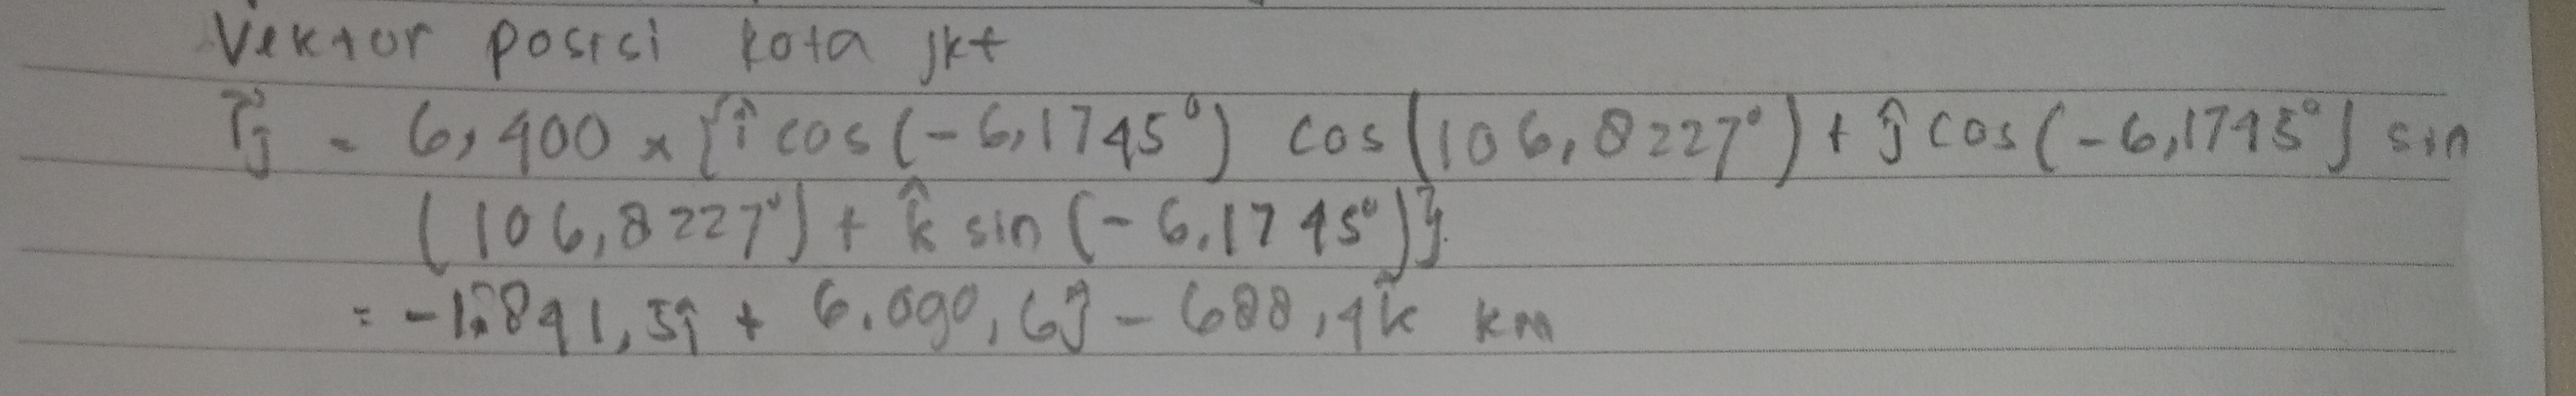 Vektor posisi kota jkt
r⃗j = 6,400 x {î cos (-6,1745°) cos (106,8227°) + ĵ cos (-6,1745°) sin
(106,8227°) + k̂ sin (-6.1745°)}
= -1.841,5î + 6.090,6ĵ - 688,4k̂ km